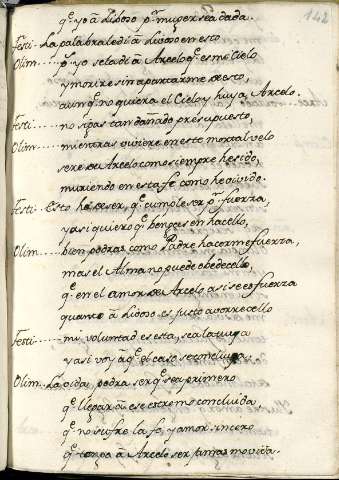 142
q̃ yo a Lidoso pr muger sea dada.
Festi - La palabra le di a Lidoso en esto
Olim - p̃ yo se la di a Arcelo q̃ es mi Cielo
y morire sin apartarme de esto,
aunq̃ no quiera el Cielo y huya, Arcelo.
Festi - no sigas tan dañado presupuesto,
Olim - mientras viviere en este mortal velo
sere de Arcelo como siempre he sido,
muriendo en esta fe como he vivido.
Festi - Esto ha de ser, q̃ cumple ser pr fuerza,
y asi quiero q̃ benges en hacello,
Olim - bien podras como Padre hacerme fuerza,
mas el Alma no puede obedecello,
q̃ en el amor de Arcelo asi se esfuerza
quanto a Lidoso es justo avorrecello
Festi - mi voluntad es esta, sea la tuya
y asi voy a q̃ el caso se concluya.
Olim - La vida, podra ser q̃ sea primero
q̃ llegar a ese estremo concluida
q̃ no sufre la fe, y amor sincero
q̃ tengo a Arcelo ser jamas movida.